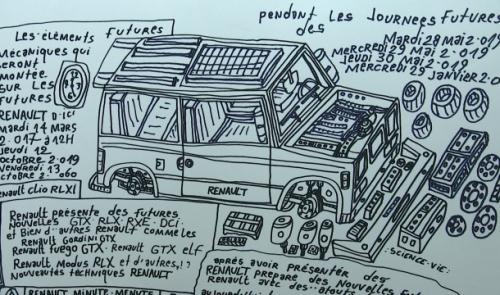 Les éléments futures
Mécaniques qui
seront
montée
sur Les
futures
RENAULT D.ICI
mardi 14 mars
2.017 à 12H
jeudi 12
octobre 2.019
vendredi 13
octobre 2.060
Renault clio RLX!
pendant Les Journées Futures
des
Mardi 28 mai 2.019
Mercredi 29 mai 2.019
Jeudi 30 mai 2.019
Mercredi 29 janvier 2.0
RENAULT
SCIENCE-VIE:
Renault présente des futures
nouvelles GTX RLX, RXE: DCI
et Bien d'autres Renault comme Les
Renault Gordini GTX
Renault fuego GTX: Renault GTX elf
Renault Modus RLX et d'autres,!?
Nouveautés techniques RENAULT
après avoir présenter des
RENAULT prépare des Nouvelles Futur
Renault avec des
RENAULT MINUTE:MINUTE